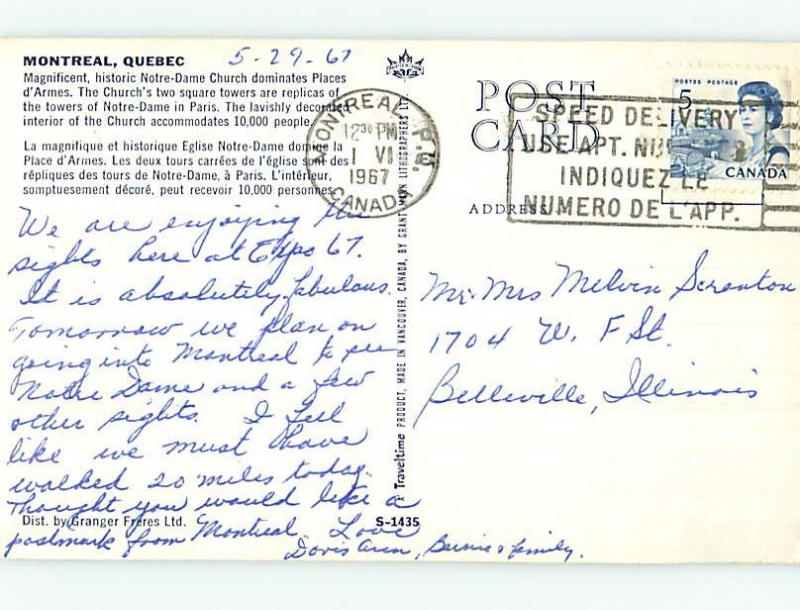 MONTREAL, QUEBEC
5-29-67
Magnificent, historic Notre-Dame Church dominates Places
d'Armes. The Church's two square towers are replicas of
the towers of Notre-Dame in Paris. The lavishly decorated
interior of the Church accommodates 10,000 people.
La magnifique et historique Eglise Notre-Dame domine la
Place d'Armes. Les deux tours carrées de l'église sont des
répliques des tours de Notre-Dame, à Paris. L'intérieur,
somptuesement décoré, peut recevoir 10,000 personnes.
We are enjoying the
sights here at Expo 67.
It is absolutely fabulous.
Tomorrow we plan on
going into Montreal to see
Notre Dame and a few
other sights. I feel
like we must have
walked 20 miles today.
Thought you would like a
postmark from Montreal. Love
Doris Ann, Bernie & family.
Dist. by Granger Frères Ltd.
S-1435
Traveltime PRODUCT, MADE IN VANCOUVER, CANADA, BY GRANT-MANN LITHOGRAPHERS LTD.
MONTREAL P.Q.
12 30 PM
1 VI
1967
CANADA
POST
CARD
ADDRESS
SPEED DELIVERY
USE APT. NU
INDIQUEZ LE
NUMERO DE L'APP.
POSTES POSTAGE
5
CANADA
Mr. Mrs Melvin Scranton
1704 W. F St.
Belleville, Illinois